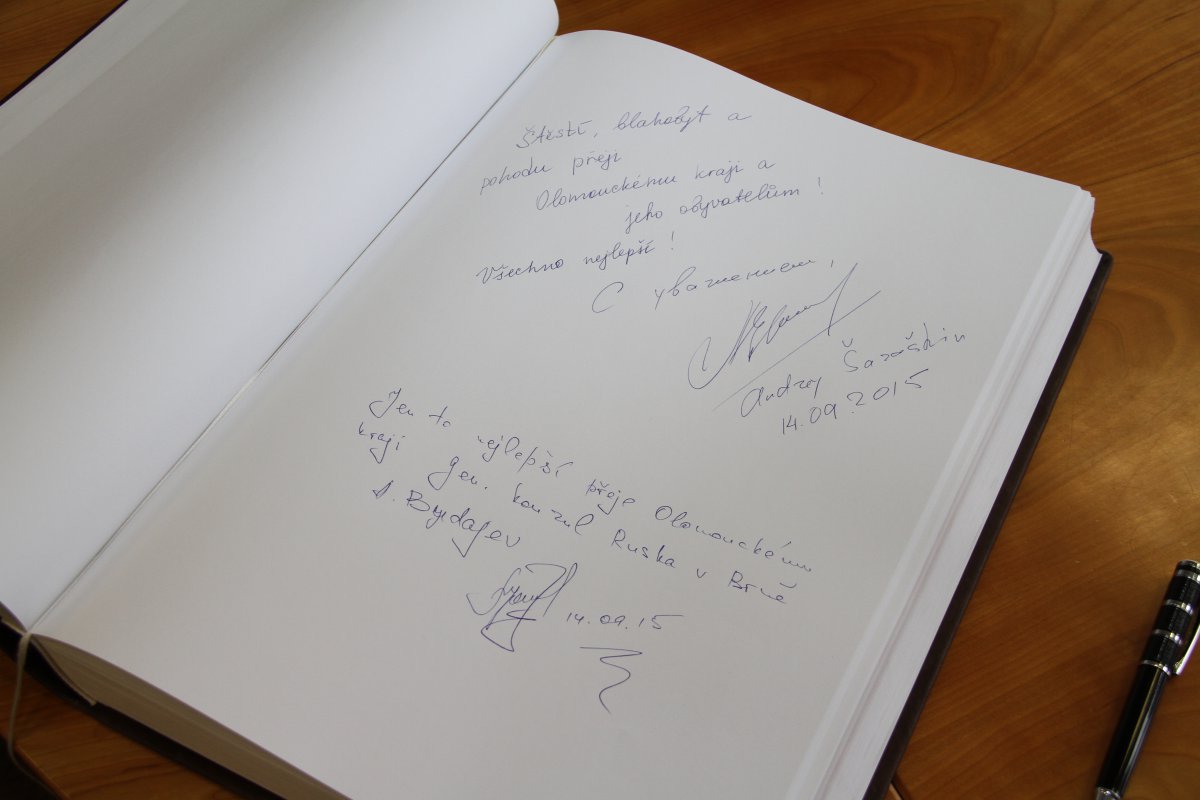 Štěstí, blahobyt a
pohodu přeji
Olomouckému kraji a
jeho obyvatelům !
Všechno nejlepší !
С уважением,
Andrej Šaraškin
14.09.2015
Jen to nejlepší přeje Olomouckému
kraji gen. konzul Ruska v Brně
A. Budajev
14.09.15